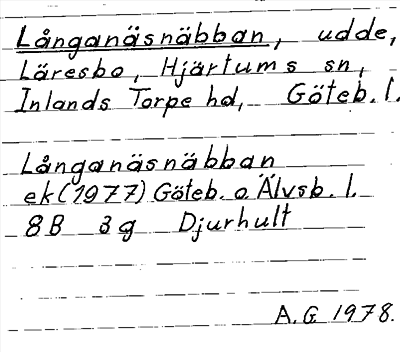 Långanäsnäbban, udde,
Läresbo, Hjärtums sn,
Inlands Torpe hd, Göteb. l.
Långanäsnäbban
ek (1977) Göteb. o. Älvsb. l.
8B 3g Djurhult
A.G. 1978.